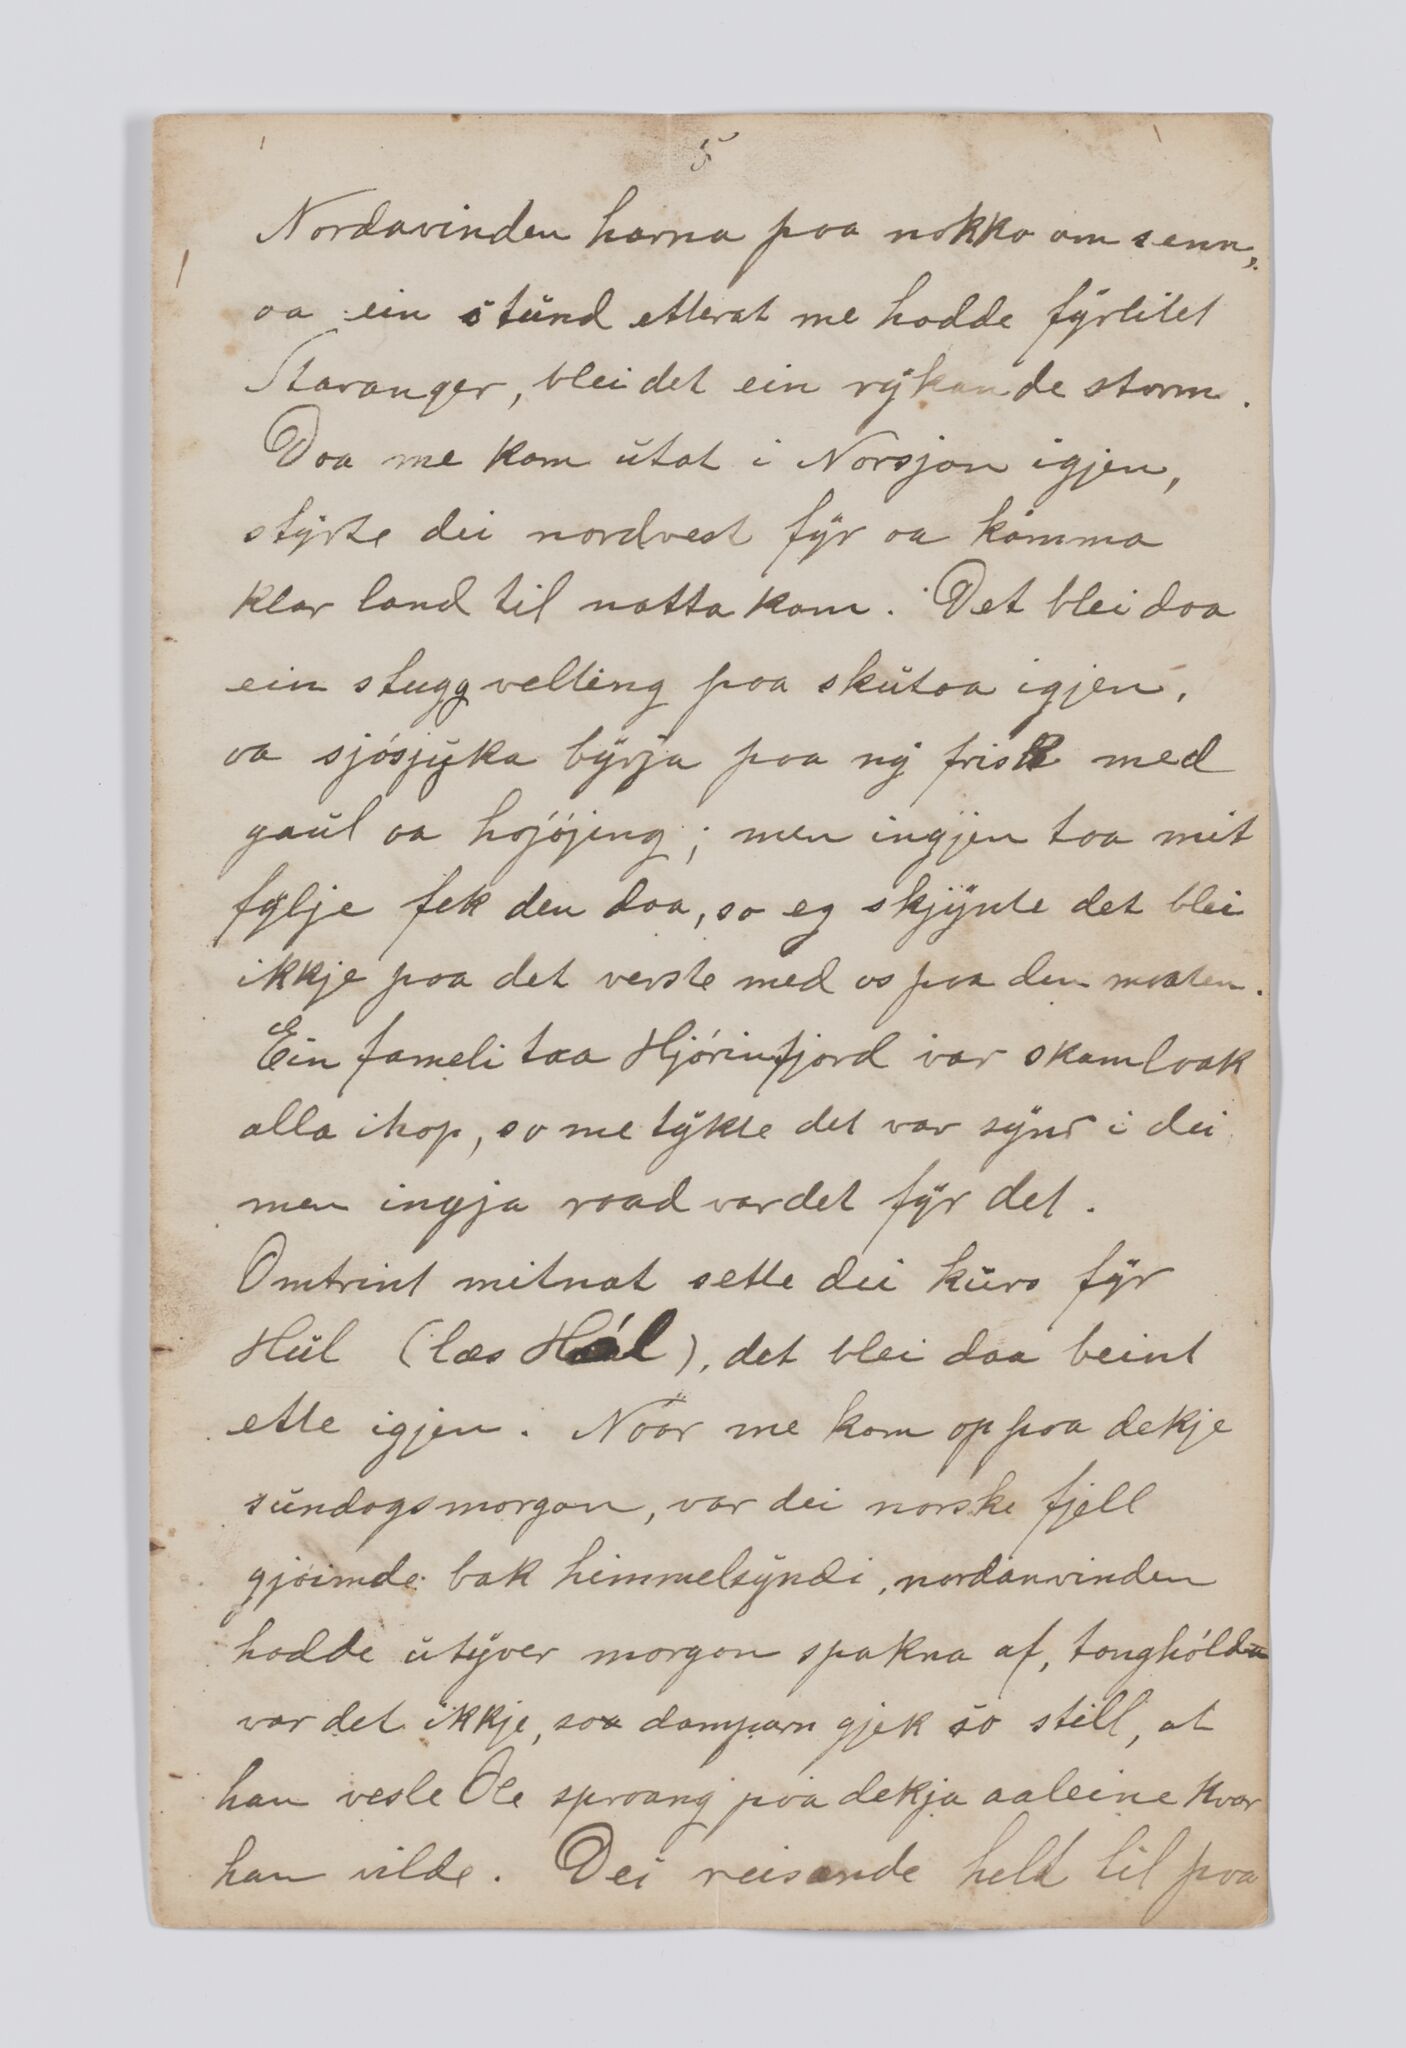 5
Nordavinden harna paa nokko om senn,
oa ein stünd etterat me hadde fÿrlitet
Stavanger, blei det ein rÿkande storm.
Daa me kom ütat i Norsjon igjen,
stÿrte dei nordvest fÿr oa kómma
klar land til natta kom. Det blei daa
ein stugg velting paa skütaa igjen,
oa sjósjÿka bÿrja paa nÿ frisk med
gaül oa hojójing; men ingjen taa mit
fÿlje fek den daa, so eg skjÿnte det blei
ikkje paa det verste med os paa den maaten.
Ein fameli taa Hjórinfjord var skamloak
alla ihop, so me tÿkte det var sÿnd i dei
men ingja raad var det fÿr det.
Omtrint mitnat sette dei kürs fÿr
Hül (læs Hól), det blei daa beint
ette igjen. Naar me kom op paa dekje
sündagsmorgon, var dei norske fjell
gjóimde bak himmelsÿndi, nordanvinden
hadde ütÿver morgon spakna af, tonghólda
var det ikkje, soa damparn gjek so still, at
han vesle Ole sproang paa dekja aaleine kvar
han vilde. Dei reisande helt til paa